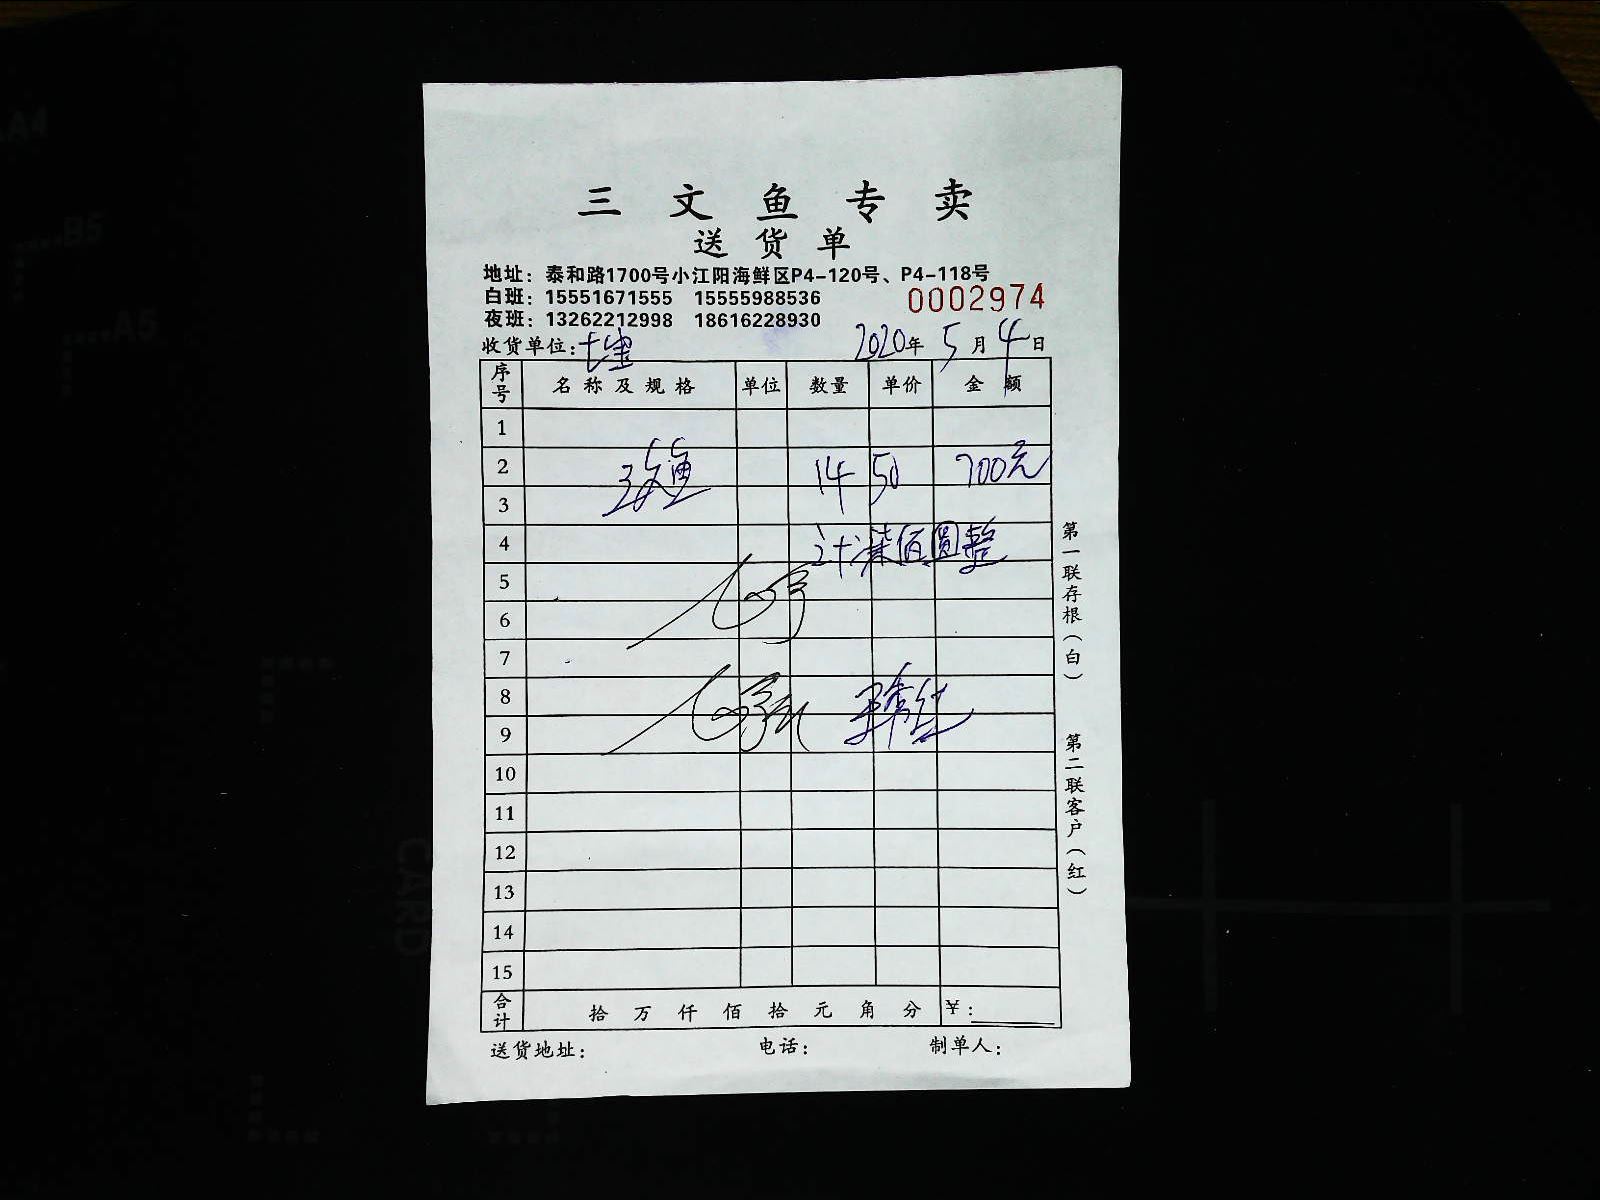 三文鱼专卖
送货单
地址：泰和路1700号小江阳海鲜区P4-120号、P4-118号
白班：15551671555 15555988536
0002974
夜班：13262212998 18616228930
收货单位： 2020年5月4日
序号 名称及规格 单位 数量 单价 金额
1
2 三文鱼 14 50 700元
3
4 计柒佰圆整
5
6
7
8
9
10
11
12
13
14
15
合计 拾万仟佰拾元角分 ¥：
送货地址： 电话： 制单人：
第一联存根（白）
第二联客户（红）